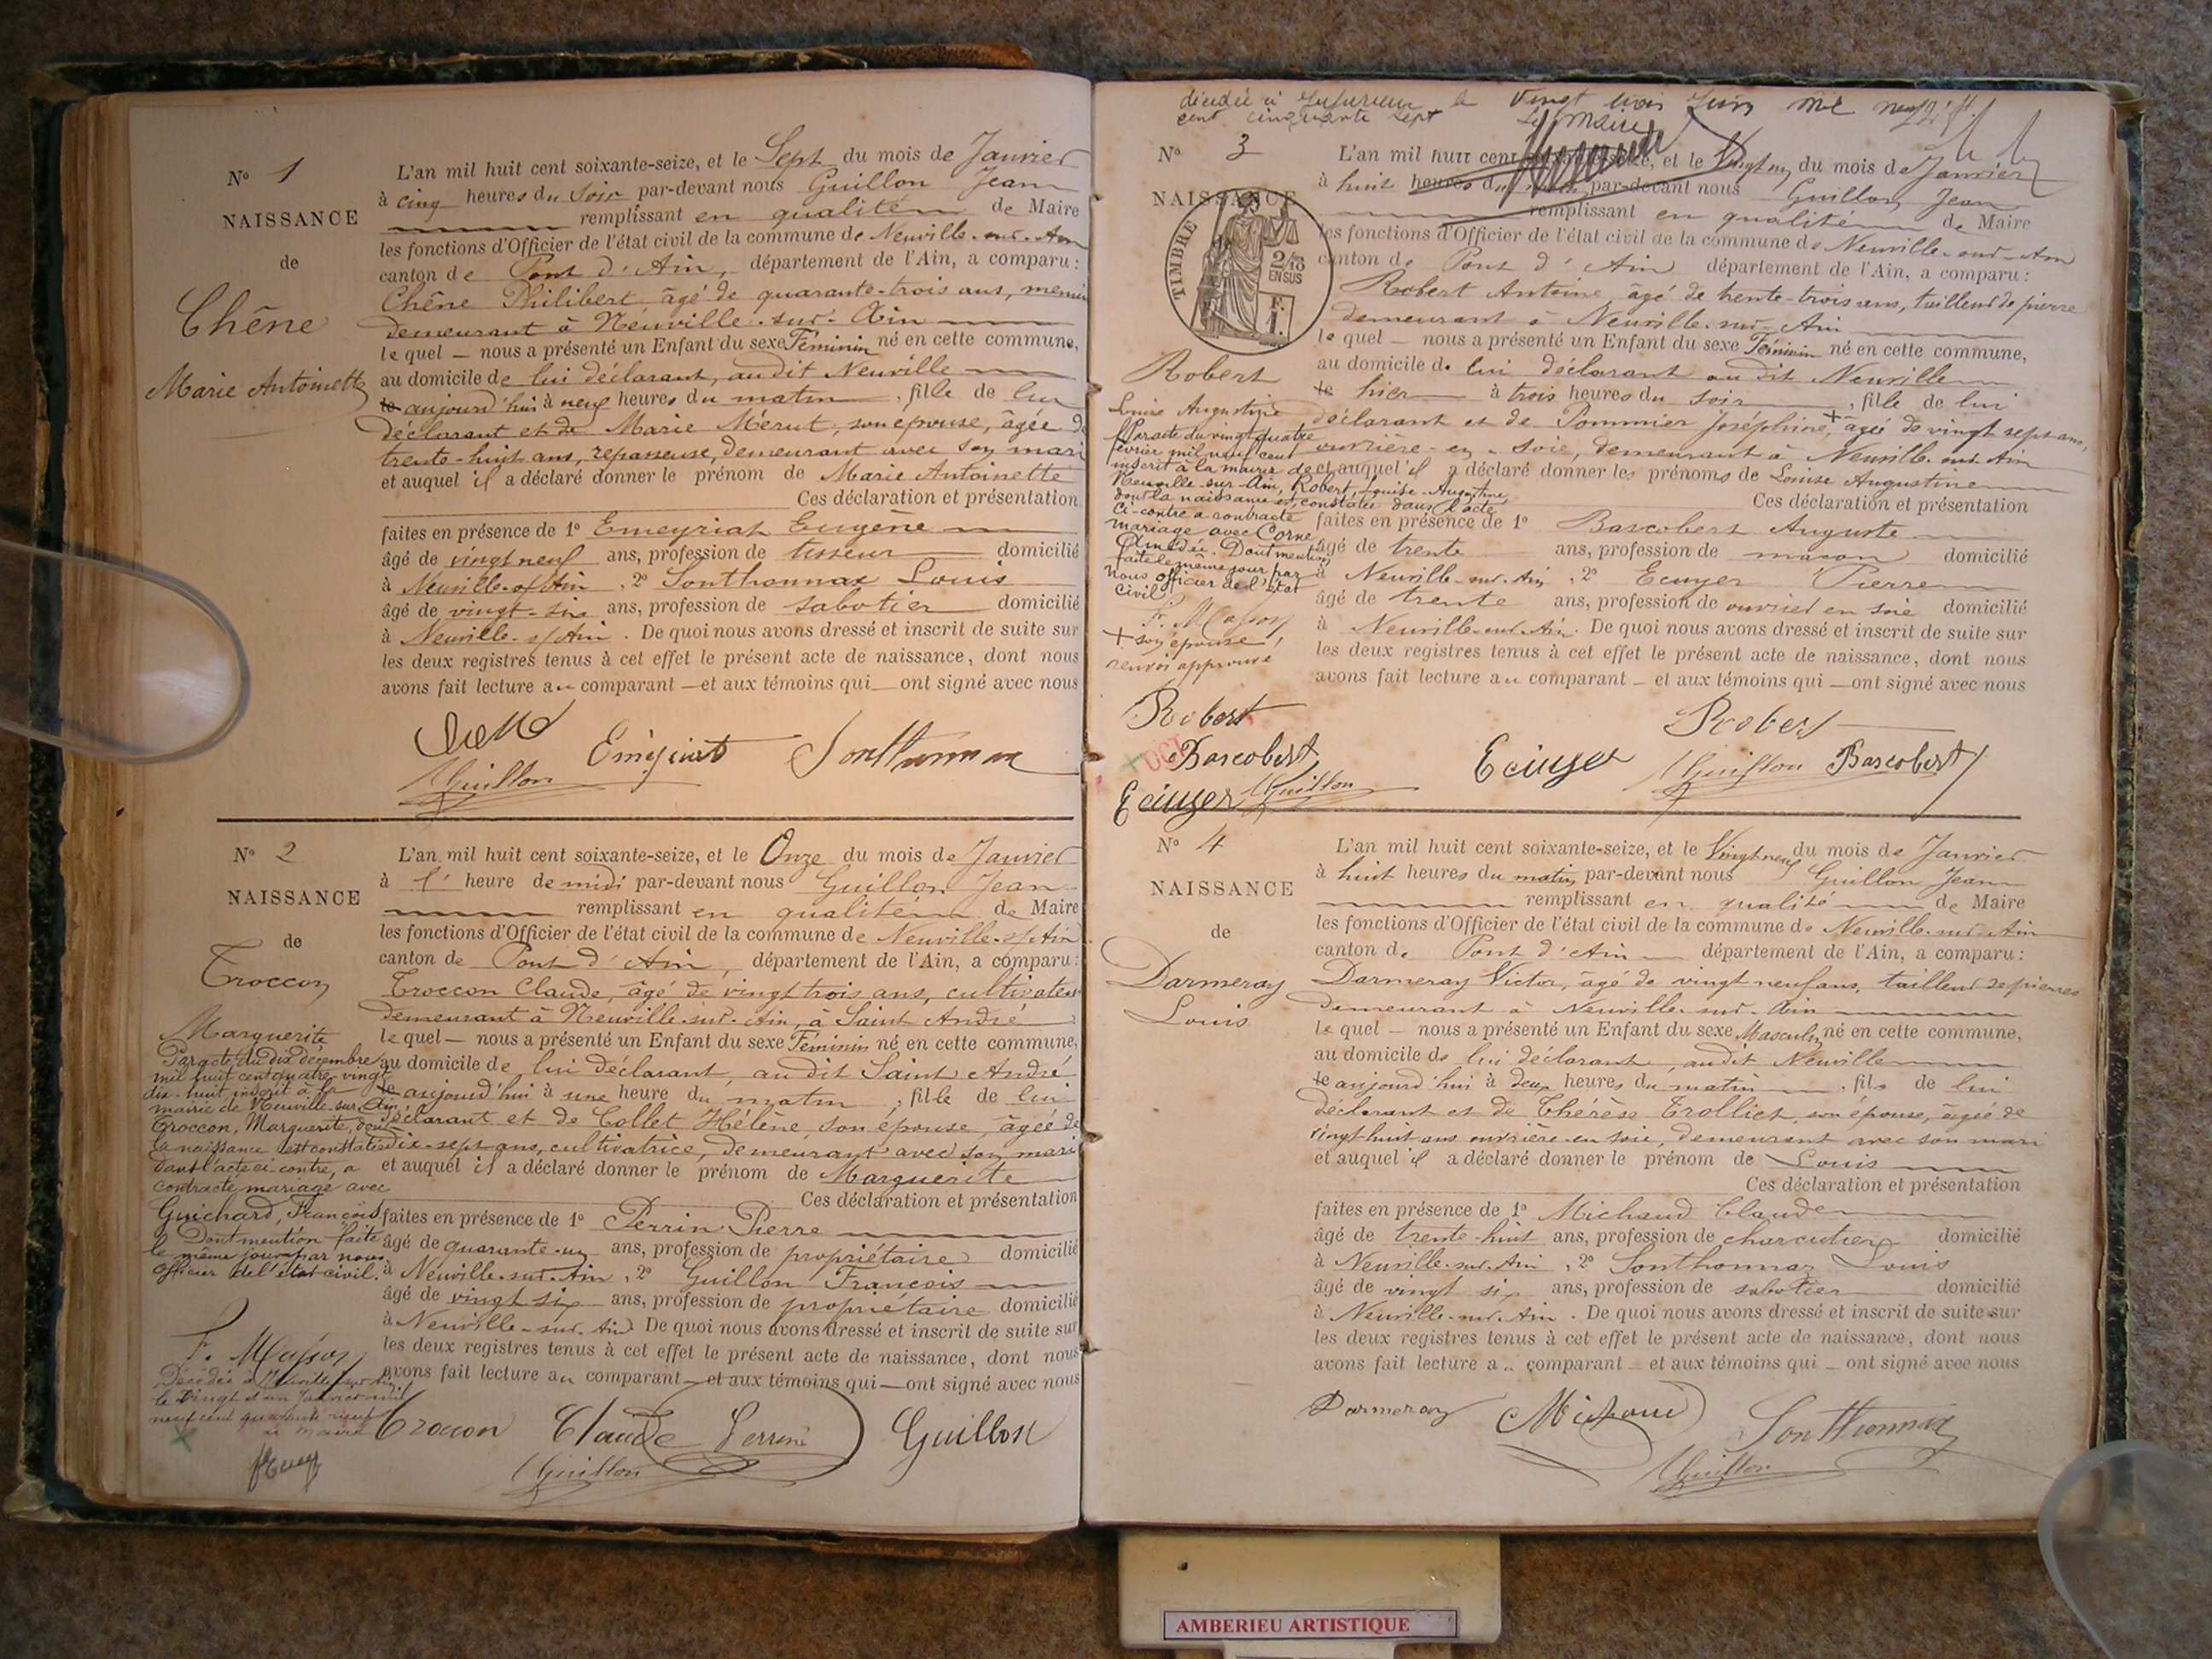 N° 1
NAISSANCE
de
Chêne
Marie Antoinette
L'an mil huit cent soixante-seize, et le Sept du mois de Janvier
à cinq heures du Soir par-devant nous Guillon Jean
remplissant en qualité de Maire
les fonctions d'Officier de l'état civil de la commune de Neuville-sur-Ain
canton de Pont d'Ain, département de l'Ain, a comparu :
Chêne Philibert âgé de quarante-trois ans,
demeurant à Neuville-sur-Ain
le quel — nous a présenté un Enfant du sexe Féminin né en cette commune,
au domicile de lui déclarant, audit Neuville
le aujourd'hui à neuf heures du matin, fille de lui
déclarant et de Marie Mérut, son épouse, âgée de
trente-huit ans, repasseuse, demeurant avec son mari
et auquel il a déclaré donner le prénom de Marie Antoinette
Ces déclaration et présentation
faites en présence de 1° Emeyriat Eugène
âgé de vingt neuf ans, profession de tisseur domicilié
à Neuville-s/-Ain, 2° Sonthonnax Louis
âgé de vingt-six ans, profession de sabotier domicilié
à Neuville-s/Ain. De quoi nous avons dressé et inscrit de suite sur
les deux registres tenus à cet effet le présent acte de naissance, dont nous
avons fait lecture au comparant — et aux témoins qui — ont signé avec nous
Emeyriat Sonthonnax
Guillon
N° 2
NAISSANCE
de
Troccon
Marguerite
Par acte du dix décembre
mil huit cent quatre-vingt
dix-huit inscrit à la
mairie de Neuville-sur-Ain,
Troccon, Marguerite, dont
la naissance est constatée
dans l'acte ci contre, a
contracté mariage avec
Guichard, François
Dont mention faite
le même jour par nous
officier de l'état civil.
F. Masson
Décédée à Neuville sur Ain
le vingt et un Janvier mil
neuf cent quarante neuf
le maire
L'an mil huit cent soixante-seize, et le Onze du mois de Janvier
à l' heure de midi par-devant nous Guillon Jean
remplissant en qualité de Maire
les fonctions d'Officier de l'état civil de la commune de Neuville-s/Ain
canton de Pont d'Ain, département de l'Ain, a comparu :
Troccon Claude, âgé de vingt trois ans, cultivateur
demeurant à Neuville-sur-Ain, à Saint André
le quel — nous a présenté un Enfant du sexe Féminin né en cette commune,
au domicile de lui déclarant, au dit Saint André
le aujourd'hui à une heure du matin, fille de lui
déclarant et de Collet Hélène, son épouse, âgée de
dix-sept ans, cultivatrice, demeurant avec son mari
et auquel il a déclaré donner le prénom de Marguerite
Ces déclaration et présentation
faites en présence de 1° Perrin Pierre
âgé de quarante-un ans, profession de propriétaire domicilié
à Neuville-sur-Ain, 2° Guillon François
âgé de vingt six ans, profession de propriétaire domicilié
à Neuville-sur-Ain De quoi nous avons dressé et inscrit de suite sur
les deux registres tenus à cet effet le présent acte de naissance, dont nous
avons fait lecture au comparant — et aux témoins qui — ont signé avec nous
Troccon Claude Perrin Guillon
Guillon
décédée à le vingt trois Juin mil neuf
cent cinquante sept
Le maire
N° 3
NAISSANCE
TIMBRE
2/10
EN SUS
Robert
Louise Augustine
Par acte du vingt quatre
février mil neuf cent
inscrit à la mairie de
Neuville-sur-Ain, Robert, Louise-Augustine
dont la naissance est constatée dans l'acte
ci-contre a contracté
mariage avec Corne
Amédée. Dont mention
faite le même jour par
nous officier de l'état
civil
F. Masson
+ son épouse,
renvoi approuvé
Robert
Bascobert
Ecuyer Guillon
L'an mil huit cent soixante-seize, et le Vingt un du mois de Janvier
à huit heures du par-devant nous Guillon Jean
remplissant en qualité de Maire
les fonctions d'Officier de l'état civil de la commune de Neuville-sur-Ain
canton de Pont d'Ain département de l'Ain, a comparu :
Robert Antoine, âgé de trente-trois ans, tailleur de pierre
demeurant à Neuville-sur-Ain
le quel — nous a présenté un Enfant du sexe Féminin né en cette commune,
au domicile de lui déclarant au dit Neuville
le hier à trois heures du soir, fille de lui
déclarant et de Pommier Joséphine, + âgée de vingt sept ans,
ouvrière-en-soie, demeurant à Neuville-sur-Ain
et auquel il a déclaré donner les prénoms de Louise Augustine
Ces déclaration et présentation
faites en présence de 1° Bascobert Auguste
âgé de trente ans, profession de maçon domicilié
à Neuville-sur-Ain, 2° Ecuyer Pierre
âgé de trente ans, profession de ouvrier en soie domicilié
à Neuville-sur-Ain. De quoi nous avons dressé et inscrit de suite sur
les deux registres tenus à cet effet le présent acte de naissance, dont nous
avons fait lecture au comparant — et aux témoins qui — ont signé avec nous
Robert
Ecuyer Guillon Bascobert
N° 4
NAISSANCE
de
Darmeray
Louis
L'an mil huit cent soixante-seize, et le Vingt neuf du mois de Janvier
à huit heures du matin par-devant nous Guillon Jean
remplissant en qualité de Maire
les fonctions d'Officier de l'état civil de la commune de Neuville-sur-Ain
canton de Pont d'Ain département de l'Ain, a comparu :
Darmeray Victor, âgé de vingt neuf ans, tailleur de pierres
demeurant à Neuville-sur-Ain
le quel — nous a présenté un Enfant du sexe Masculin né en cette commune,
au domicile de lui déclarant, audit Neuville
le aujourd'hui à deux heures du matin, fils de lui
déclarant et de Thérèse Trolliet, son épouse, âgée de
vingt-huit ans ouvrière-en-soie, demeurant avec son mari
et auquel il a déclaré donner le prénom de Louis
Ces déclaration et présentation
faites en présence de 1° Michaud Claude
âgé de trente-huit ans, profession de charcutier domicilié
à Neuville-sur-Ain, 2° Sonthonnax Louis
âgé de vingt six ans, profession de sabotier domicilié
à Neuville-sur-Ain. De quoi nous avons dressé et inscrit de suite sur
les deux registres tenus à cet effet le présent acte de naissance, dont nous
avons fait lecture au comparant — et aux témoins qui — ont signé avec nous
Darmeray Michaud Sonthonnax
Guillon
AMBERIEU ARTISTIQUE